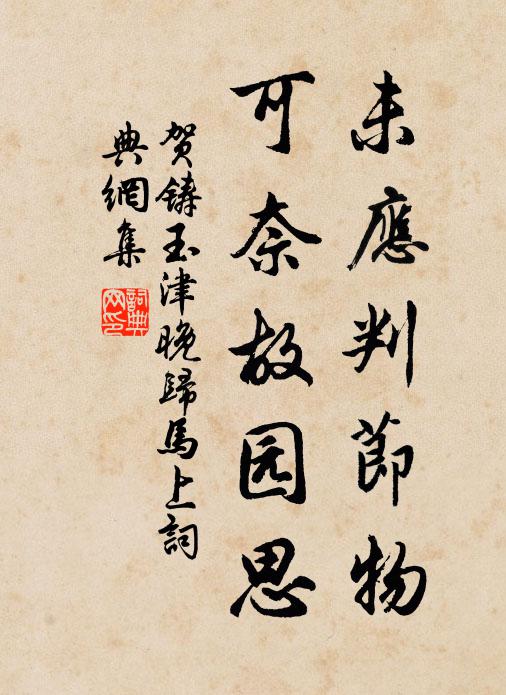 未應判節物
可奈故园思
贺鑄玉津晚歸馬上詞
典網集
詞典
网印